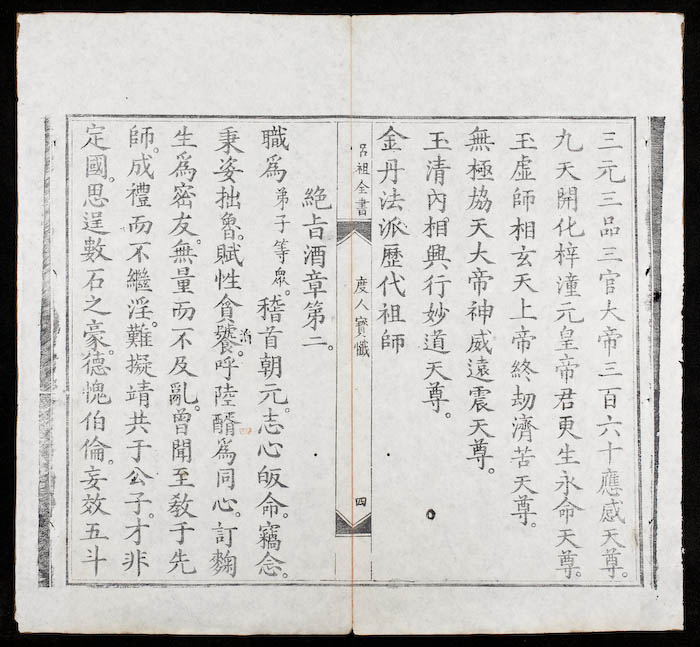 三元三品三官大帝三百六十應感天尊。
九天開化梓潼元皇帝君更生永命天尊。
玉虛師相玄天上帝終劫濟苦天尊。
無極協天大帝神威遠震天尊。
玉清內相興行妙道天尊。
金丹法派歷代祖師
呂祖全書
度人寶懺
四
絕旨酒章第二。
職爲弟子等眾。稽首朝元。志心皈命。竊念。
秉姿拙魯。賦性貪饕。呼陸醑爲同心。訂麴
生爲密友。無量而不及亂。曾聞至敎于先
師。成禮而不繼淫。難擬靖共于公子。才非
定國。思逞數石之豪。德愧伯倫。妄效五斗